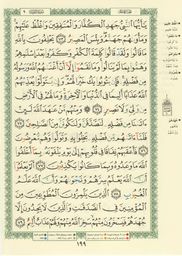 يَٰٓأَيُّهَا ٱلنَّبِيُّ جَٰهِدِ ٱلۡكُفَّارَ وَٱلۡمُنَٰفِقِينَ وَٱغۡلُظۡ عَلَيۡهِمۡۚ
وَمَأۡوَىٰهُمۡ جَهَنَّمُۖ وَبِئۡسَ ٱلۡمَصِيرُ ٧٣ يَحۡلِفُونَ بِٱللَّهِ
مَا قَالُواْ وَلَقَدۡ قَالُواْ كَلِمَةَ ٱلۡكُفۡرِ وَكَفَرُواْ بَعۡدَ إِسۡلَٰمِهِمۡ
وَهَمُّواْ بِمَا لَمۡ يَنَالُواْۚ وَمَا نَقَمُوٓاْ إِلَّآ أَنۡ أَغۡنَىٰهُمُ ٱللَّهُ
وَرَسُولُهُۥ مِن فَضۡلِهِۦۚ فَإِن يَتُوبُواْ يَكُ خَيۡرٗا لَّهُمۡۖ وَإِن يَتَوَلَّوۡاْ يُعَذِّبۡهُمُ
ٱللَّهُ عَذَابًا أَلِيمٗا فِي ٱلدُّنۡيَا وَٱلۡأٓخِرَةِۚ وَمَا لَهُمۡ فِي ٱلۡأَرۡضِ
مِن وَلِيّٖ وَلَا نَصِيرٖ ٧٤ وَمِنۡهُم مَّنۡ عَٰهَدَ ٱللَّهَ لَئِنۡ
ءَاتَىٰنَا مِن فَضۡلِهِۦ لَنَصَّدَّقَنَّ وَلَنَكُونَنَّ مِنَ ٱلصَّٰلِحِينَ ٧٥
فَلَمَّآ ءَاتَىٰهُم مِّن فَضۡلِهِۦ بَخِلُواْ بِهِۦ وَتَوَلَّواْ وَّهُم مُّعۡرِضُونَ ٧٦
فَأَعۡقَبَهُمۡ نِفَاقٗا فِي قُلُوبِهِمۡ إِلَىٰ يَوۡمِ يَلۡقَوۡنَهُۥ بِمَآ أَخۡلَفُواْ
ٱللَّهَ مَا وَعَدُوهُ وَبِمَا كَانُواْ يَكۡذِبُونَ ٧٧ أَلَمۡ يَعۡلَمُوٓاْ أَنَّ
ٱللَّهَ يَعۡلَمُ سِرَّهُمۡ وَنَجۡوَىٰهُمۡ وَأَنَّ ٱللَّهَ عَلَّٰمُ
ٱلۡغُيُوبِ ٧٨ ٱلَّذِينَ يَلۡمِزُونَ ٱلۡمُطَّوِّعِينَ مِنَ
ٱلۡمُؤۡمِنِينَ فِي ٱلصَّدَقَٰتِ وَٱلَّذِينَ لَا يَجِدُونَ إِلَّا
جُهۡدَهُمۡ فَيَسۡخَرُونَ مِنۡهُمۡ سَخِرَ ٱللَّهُ مِنۡهُمۡ وَلَهُمۡ عَذَابٌ أَلِيمٌ ٧٩
١٩٩